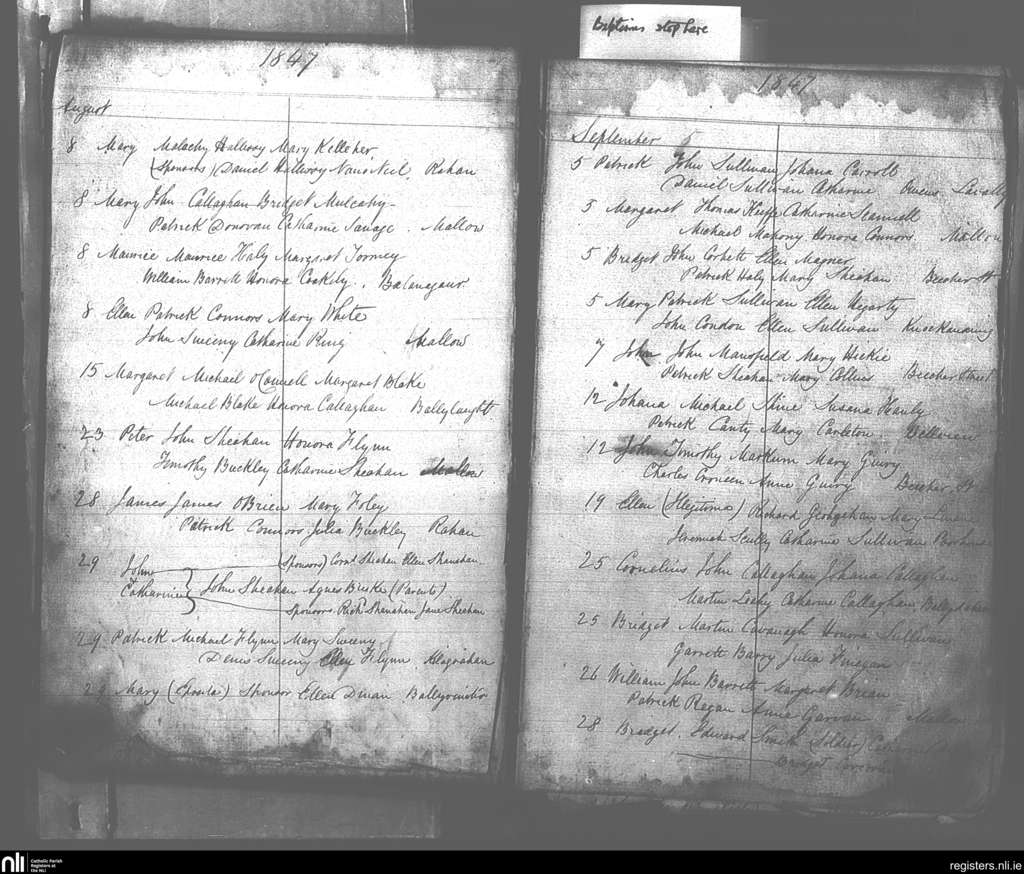 Baptisms stop here
1847
August
8 Mary Malachy Hallissy Mary Kelleher
(Sponsors) Daniel Hallissy Nano Neil Rahan
8 Mary John Callaghan Bridget Mulcahy
Patrick Donovan Catharine Savage. Mallow
8 Maurice Maurice Haly Margaret Tormey
William Barrett Honora Coakily.
8 Ellen Patrick Connors Mary White
John Sweeny Catharine Ring Mallow
15 Margaret Michael O'Connell Margaret Blake
Michael Blake Honora Callaghan Ballylaught
23 Peter John Sheahan Honora Flynn
Timothy Buckley Catharine Sheahan Mallow
28 James James OBrien Mary Foley
Patrick Connors Julia Buckley Rahan
29 John (Sponsors) Corns Sheahan Ellen Shanahan
Catharine John Sheahan Agnes Burke (Parents)
Sponsors Richd Shanahan Jane Sheahan
29 Patrick Michael Flynn Mary Sweeny
Denis Sweeny Elley Flynn
29 Mary Sponsor Ellen Dinan
1847
September
5 Patrick John Sullivan Johana Carroll
Daniel Sullivan Catharine Owens
5 Margaret Thomas Keeffe Catharine Scannell
Michael Mahony Honora Connors. Mallow
5 Bridget John Corbett Ellen Magner
Patrick Haly Mary Sheahan Beecher St
5 Mary Patrick Sullivan Ellen Hegarty
John Condon Ellen Sullivan
7 John John Mansfield Mary Hickie
Patrick Sheahan Mary Collins Beecher Street
12 Johana Michael Shine Susana Hanly
Patrick Canty Mary Carleton
12 John Timothy Markum Mary Guiry
Charles Croneen Anne Guiry Beecher St
19 Ellen Richard Geoghehan Mary
Jeremiah Scully Catharine Sullivan
25 Cornelius John Callaghan Johana Callaghan
Martin Leahy Catharine Callaghan
25 Bridget Martin Cavanagh Honora Sullivan
Garrett Barry Julia Finegan
26 William John Barrett Margaret Brien
Patrick Regan Anne Garvan Mallow
28 Bridget. Edward Smith (Soldier)
Bridget
nli
Catholic Parish
Registers at
the NLI
registers.nli.ie